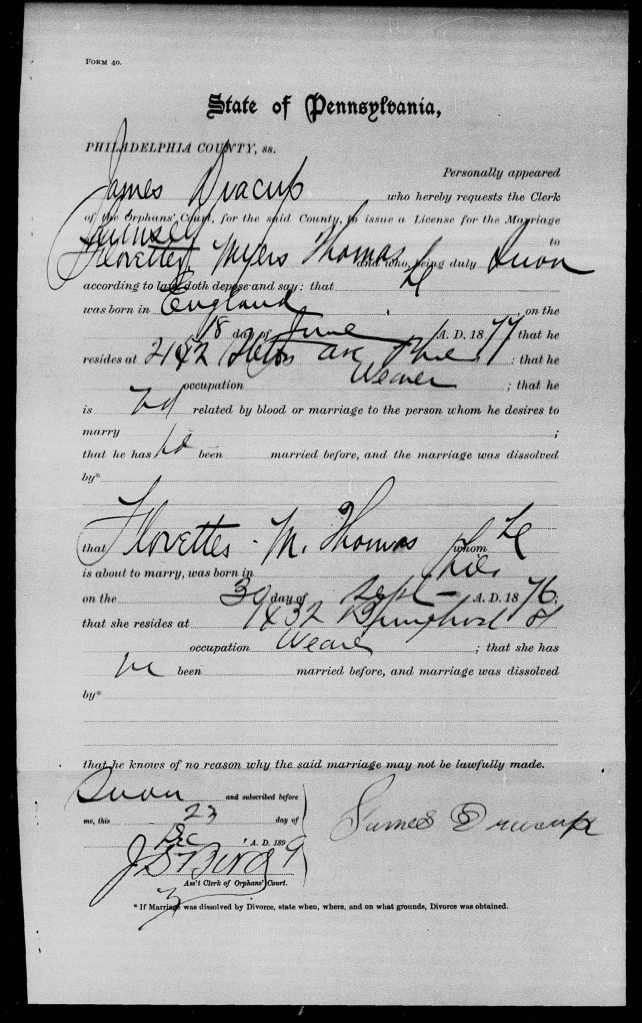 FORM 40.
State of Pennsylvania,
PHILADELPHIA COUNTY, ss.
Personally appeared
James Dracup who hereby requests the Clerk
of the Orphans' Court, for the said County, to issue a License for the Marriage
himself to
Florettes Myers Thomas and who, being duly Sworn
according to law, doth depose and say: that he
was born in England, on the
18 day of June A. D. 1877 that he
resides at 2142 Ave Phila; that he
occupation Weaver; that he
is not related by blood or marriage to the person whom he desires to
marry;
that he has no been married before, and the marriage was dissolved
by*
that Florettes M. Thomas whom he
is about to marry, was born in Phila
on the 30 day of Sept A. D. 1876;
that she resides at St
occupation Weaver; that she has
no been married before, and marriage was dissolved
by*
that he knows of no reason why the said marriage may not be lawfully made.
Sworn and subscribed before
me, this 23 day of
Dec A. D. 1899
James Dracup
J S Bird
Ass't Clerk of Orphans' Court.
* If Marriage was dissolved by Divorce, state when, where, and on what grounds, Divorce was obtained.